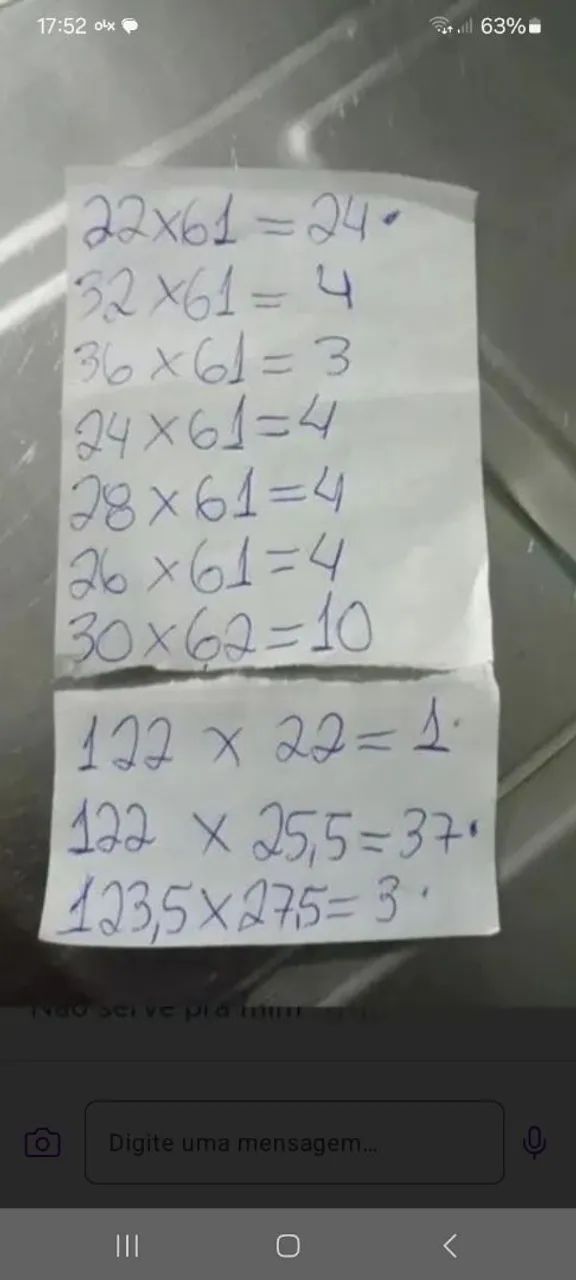 17:52 olx 63%
22x61 = 24.
32x61 = 4
36x61 = 3
24x61=4
28x61=4
26x61=4
30x62=10
122 x 22= 1.
122 x 25,5=37.
123,5x27,5= 3.
Não serve pra mim
Digite uma mensagem...